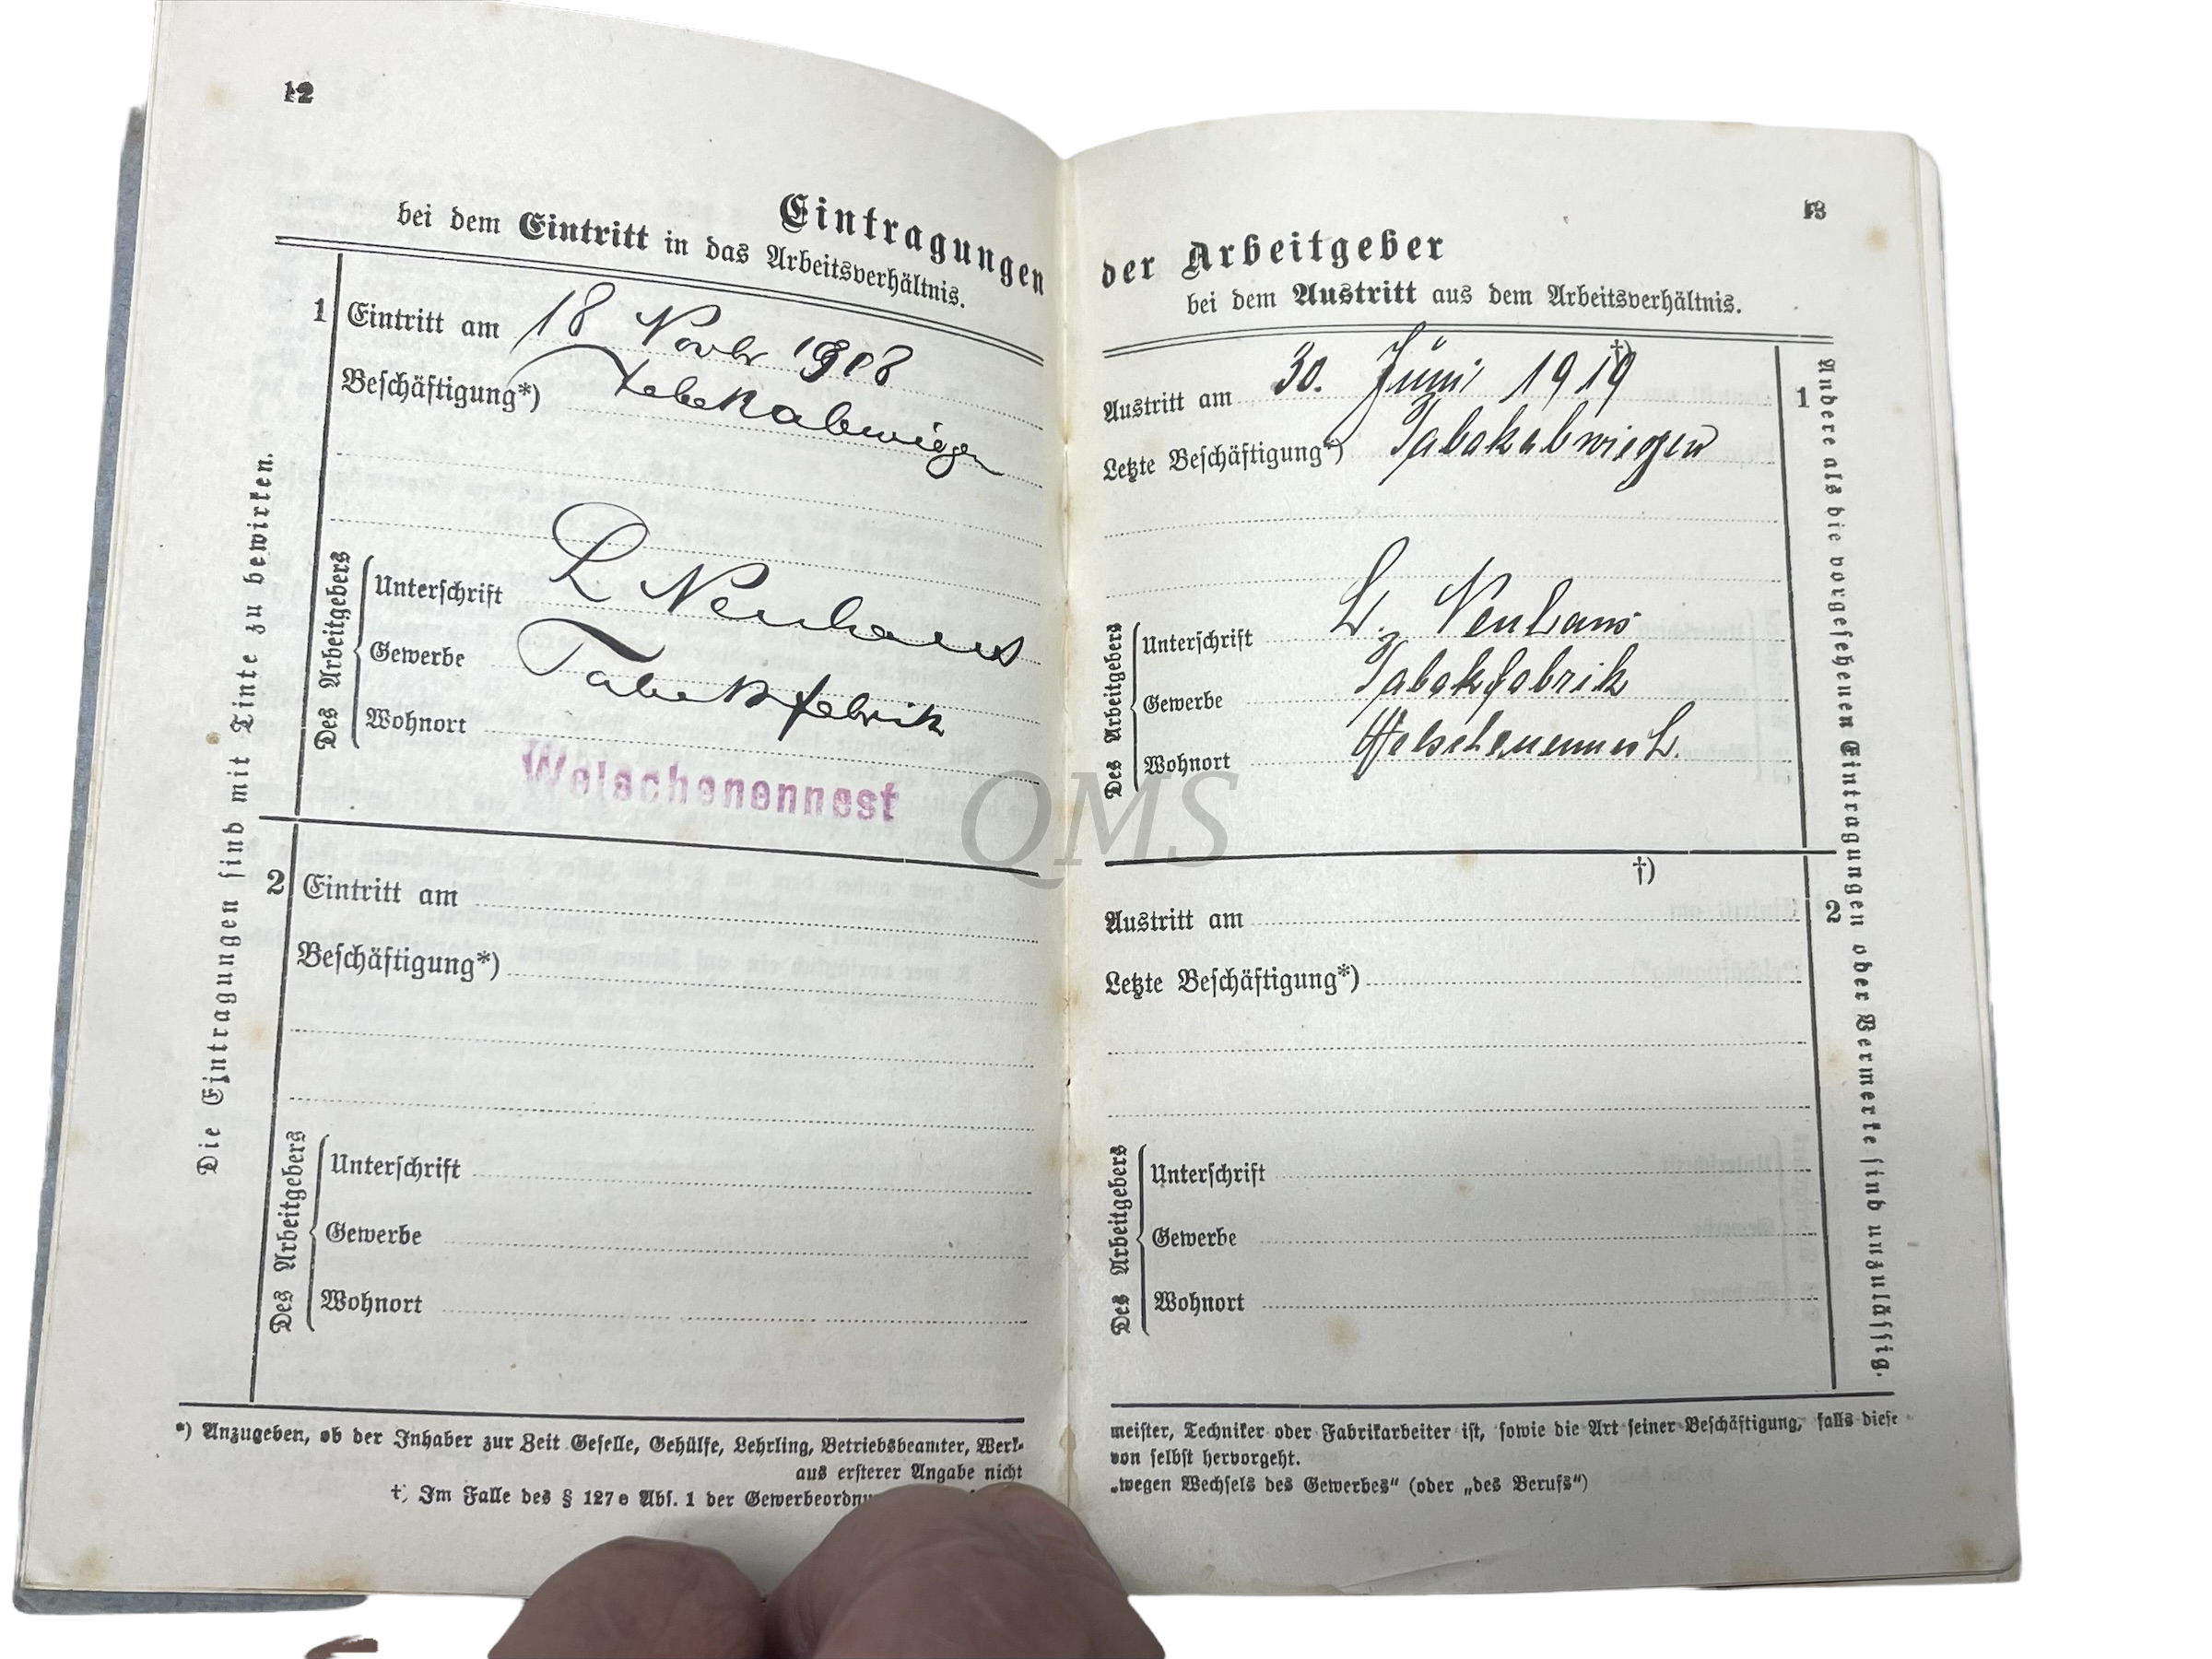 12
Eintragungen
bei dem Eintritt in das Arbeitsverhältnis.
1 Eintritt am 18 Novbr 1908
Beschäftigung*) Tabakabwiegen
Des Arbeitgebers
Unterschrift L Neuhaus
Gewerbe Tabakfabrik
Wohnort
Welschenennest
2 Eintritt am
Beschäftigung*)
Des Arbeitgebers
Unterschrift
Gewerbe
Wohnort
Die Eintragungen sind mit Tinte zu bewirken.
*) Anzugeben, ob der Inhaber zur Zeit Geselle, Gehülfe, Lehrling, Betriebsbeamter, Werk-
aus ersterer Angabe nicht
†) Im Falle des § 127e Abs. 1 der
13
der Arbeitgeber
bei dem Austritt aus dem Arbeitsverhältnis.
†)
Austritt am 30. Juni 1919 1
Letzte Beschäftigung*) Tabakabwiegen
Des Arbeitgebers
Unterschrift L. Neuhaus
Gewerbe Tabakfabrik
Wohnort Welschenennest.
†)
Austritt am 2
Letzte Beschäftigung*)
Des Arbeitgebers
Unterschrift
Gewerbe
Wohnort
Andere als die vorgesehenen Eintragungen oder Vermerke sind unzulässig.
meister, Techniker oder Fabrikarbeiter ist, sowie die Art seiner Beschäftigung, falls diese
von selbst hervorgeht.
„wegen Wechsels des Gewerbes" (oder „des Berufs")
QMS